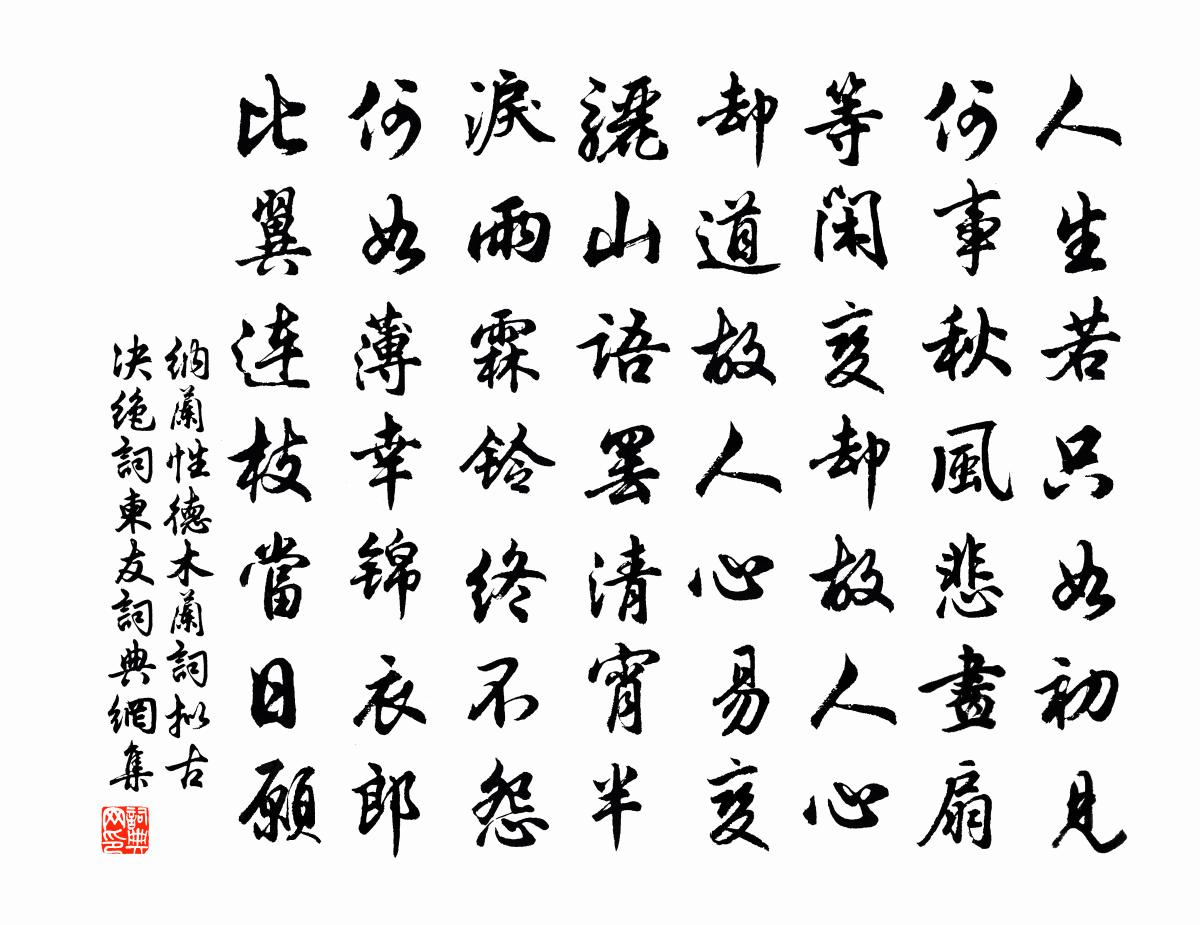 人生若只如初見
何事秋風悲畫扇
等閑變却故人心
却道故人心易變
驪山語罷清宵半
淚雨霖鈴終不怨
何如薄幸錦衣郎
比翼連枝當日願
納蘭性德木蘭詞拟古
决絶詞柬友詞典網集
詞典網印